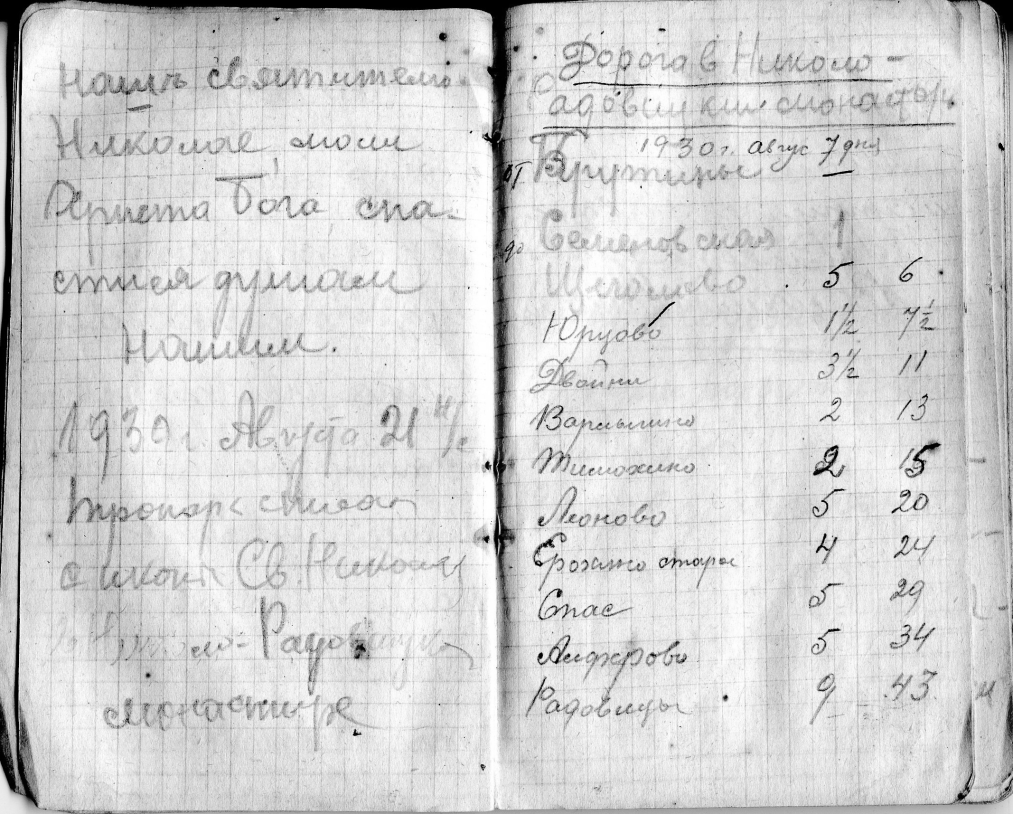 нашъ святителю
Николае, моли
Христа Бога, спа-
стися душам
нашим.
1930 г. Августа 21 н/с
тропарь списан
с иконы Св. Николы
Николо-Радовицком
монастыре
Дорога в Николо-
Радовицкий монастырь
1930 г. авгус 7 дня
от Крутины —
до Семеновская 1
Щеголево 5 6
Юрцово 1½ 7½
Двойни 3½ 11
Варыгино 2 13
Тимохино 2 15
Леоново 5 20
Ерохино старое 4 24
Спас 5 29
Алферово 5 34
Радовицы 9 43